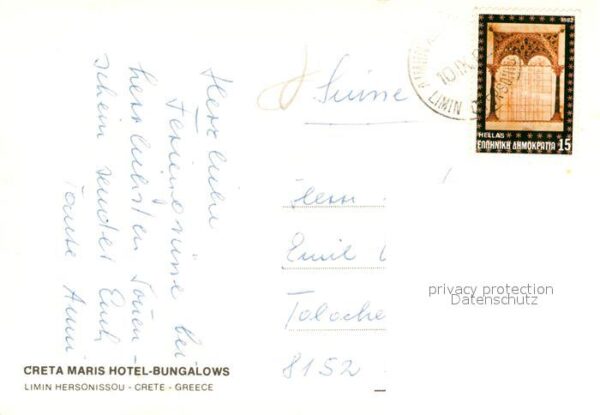 Herzlichen
Feriengrüsse bei
herrlichstem Sonnen-
schein sendet Euch
Tante Anni
Suisse
Herr
Emil
8152
1982
HELLAS
ΕΛΛΗΝΙΚΗ ΔΗΜΟΚΡΑΤΙΑ 15
LIMIN
privacy protection
Datenschutz
CRETA MARIS HOTEL-BUNGALOWS
LIMIN HERSONISSOU - CRETE - GREECE